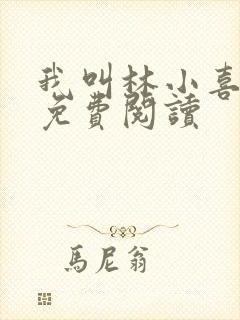 我叫林小喜
免費閱讀
馬尼翁